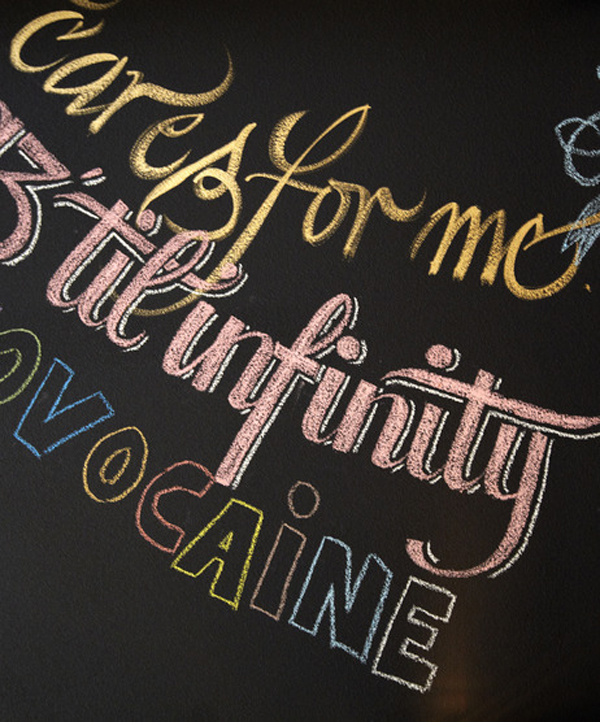 cares for me.
3 'til infinity
OVOCAiNE